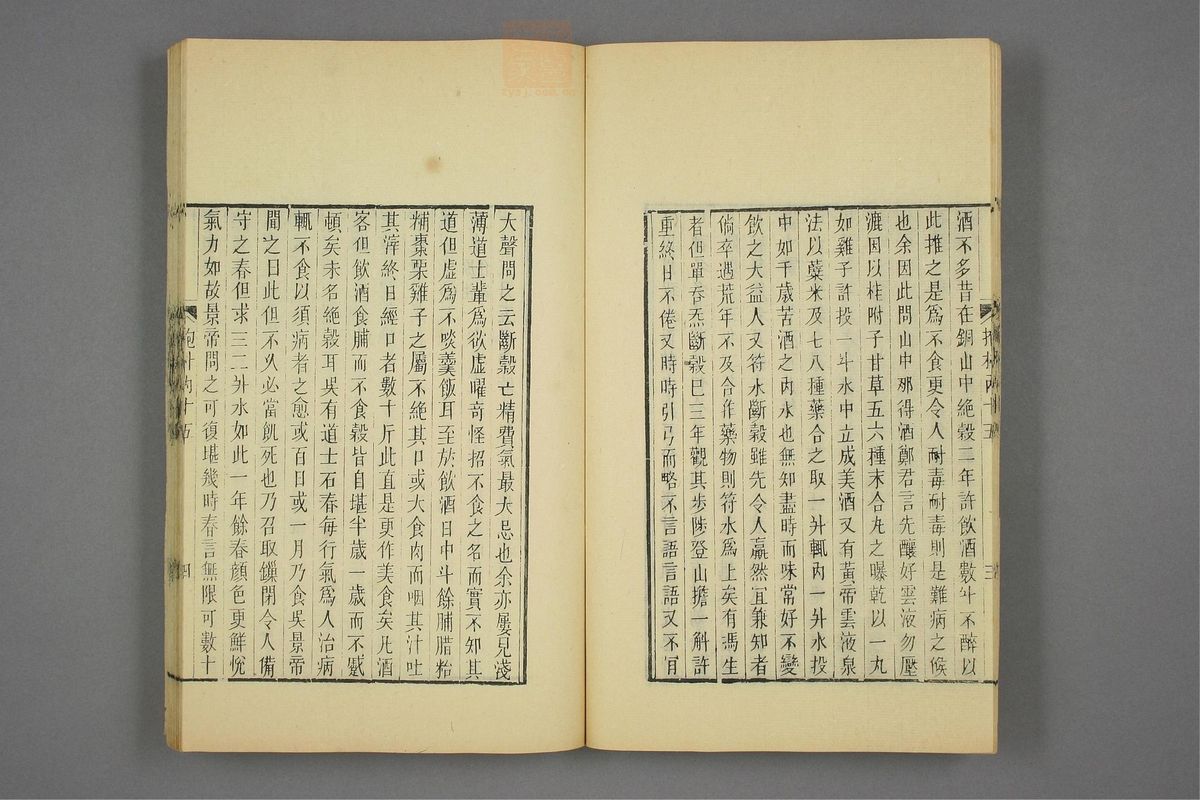 酒不多昔在銅山中絶穀二年許飲酒數斗不醉以
此推之是爲不食更令人耐毒耐毒則是難病之候
也余因此問山中那得酒鄭君言先釀好雲液勿壓
漉因以桂附子甘草五六種末合丸之曝乾以一丸
如雞子許投一斗水中立成美酒又有黃帝雲液泉
法以蘖米及七八種藥合之取一升輒內一升水投
中如千歲苦酒之內水也無知盡時而味常好不變
飲之大益人又符水斷穀雖先令人羸然宜兼知者
倘卒遇荒年不及合作藥物則符水爲上矣有馮生
者但單吞炁斷穀巳三年觀其步陟登山擔一斛許
重終日不倦又時時引弓而略不言語言語又不肎
抱朴內十五
三
大聲問之云斷穀亡精費氣最大忌也余亦屢見淺
薄道士輩爲欲虛曜奇怪招不食之名而實不知其
道但虛爲不啖羹飯耳至於飲酒日中斗餘脯腊粭
糒棗栗雞子之屬不絶其口或大食肉而咽其汁吐
其滓終日經口者數十斤此直是更作美食矣凡酒
客但飲酒食脯而不食穀皆自堪半歲一歲而不蹙
頓矣未名絶穀耳吳有道士石春每行氣爲人治病
輒不食以須病者之愈或百日或一月乃食吳景帝
聞之曰此但不久必當飢死也乃召取鏁閉令人備
守之春但求三二升水如此一年餘春顏色更鮮悅
氣力如故景帝問之可復堪幾時春言無限可數十
抱朴內十五
四
zysj.com.cn